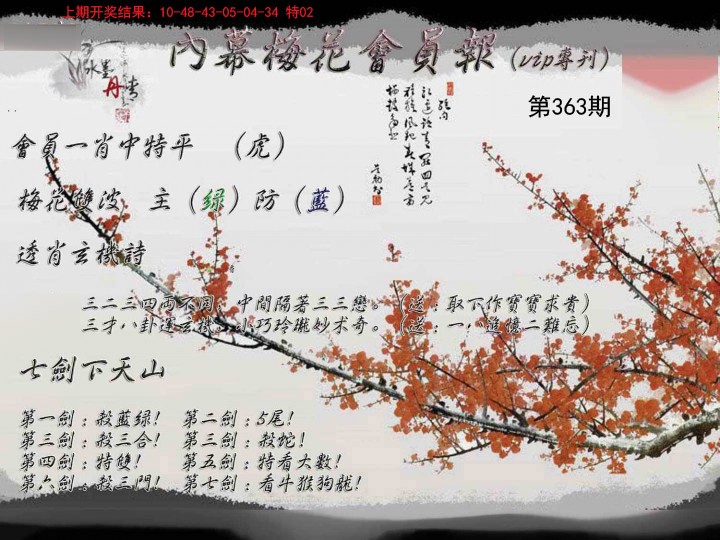 上期开奖结果：10-48-43-05-04-34 特02
內幕梅花會員報(vip專刊)
第363期
水墨
丹情
會員一肖中特平 （虎）
梅花雙波 主（绿）防（藍）
透肖玄機詩
三二三四两不同，中間隔著三三戀。（送：取下作寶寶求貴）
三才八卦運玄機，小巧玲瓏妙术奇。（送：一，追憶二難忘）
七劍下天山
第一劍：殺藍绿！ 第二劍：5尾！
第三劍：殺三合！ 第三劍：殺蛇！
第四劍：特雙！ 第五劍：特看大數！
第六劍：殺三門！ 第七劍：看牛猴狗龍！